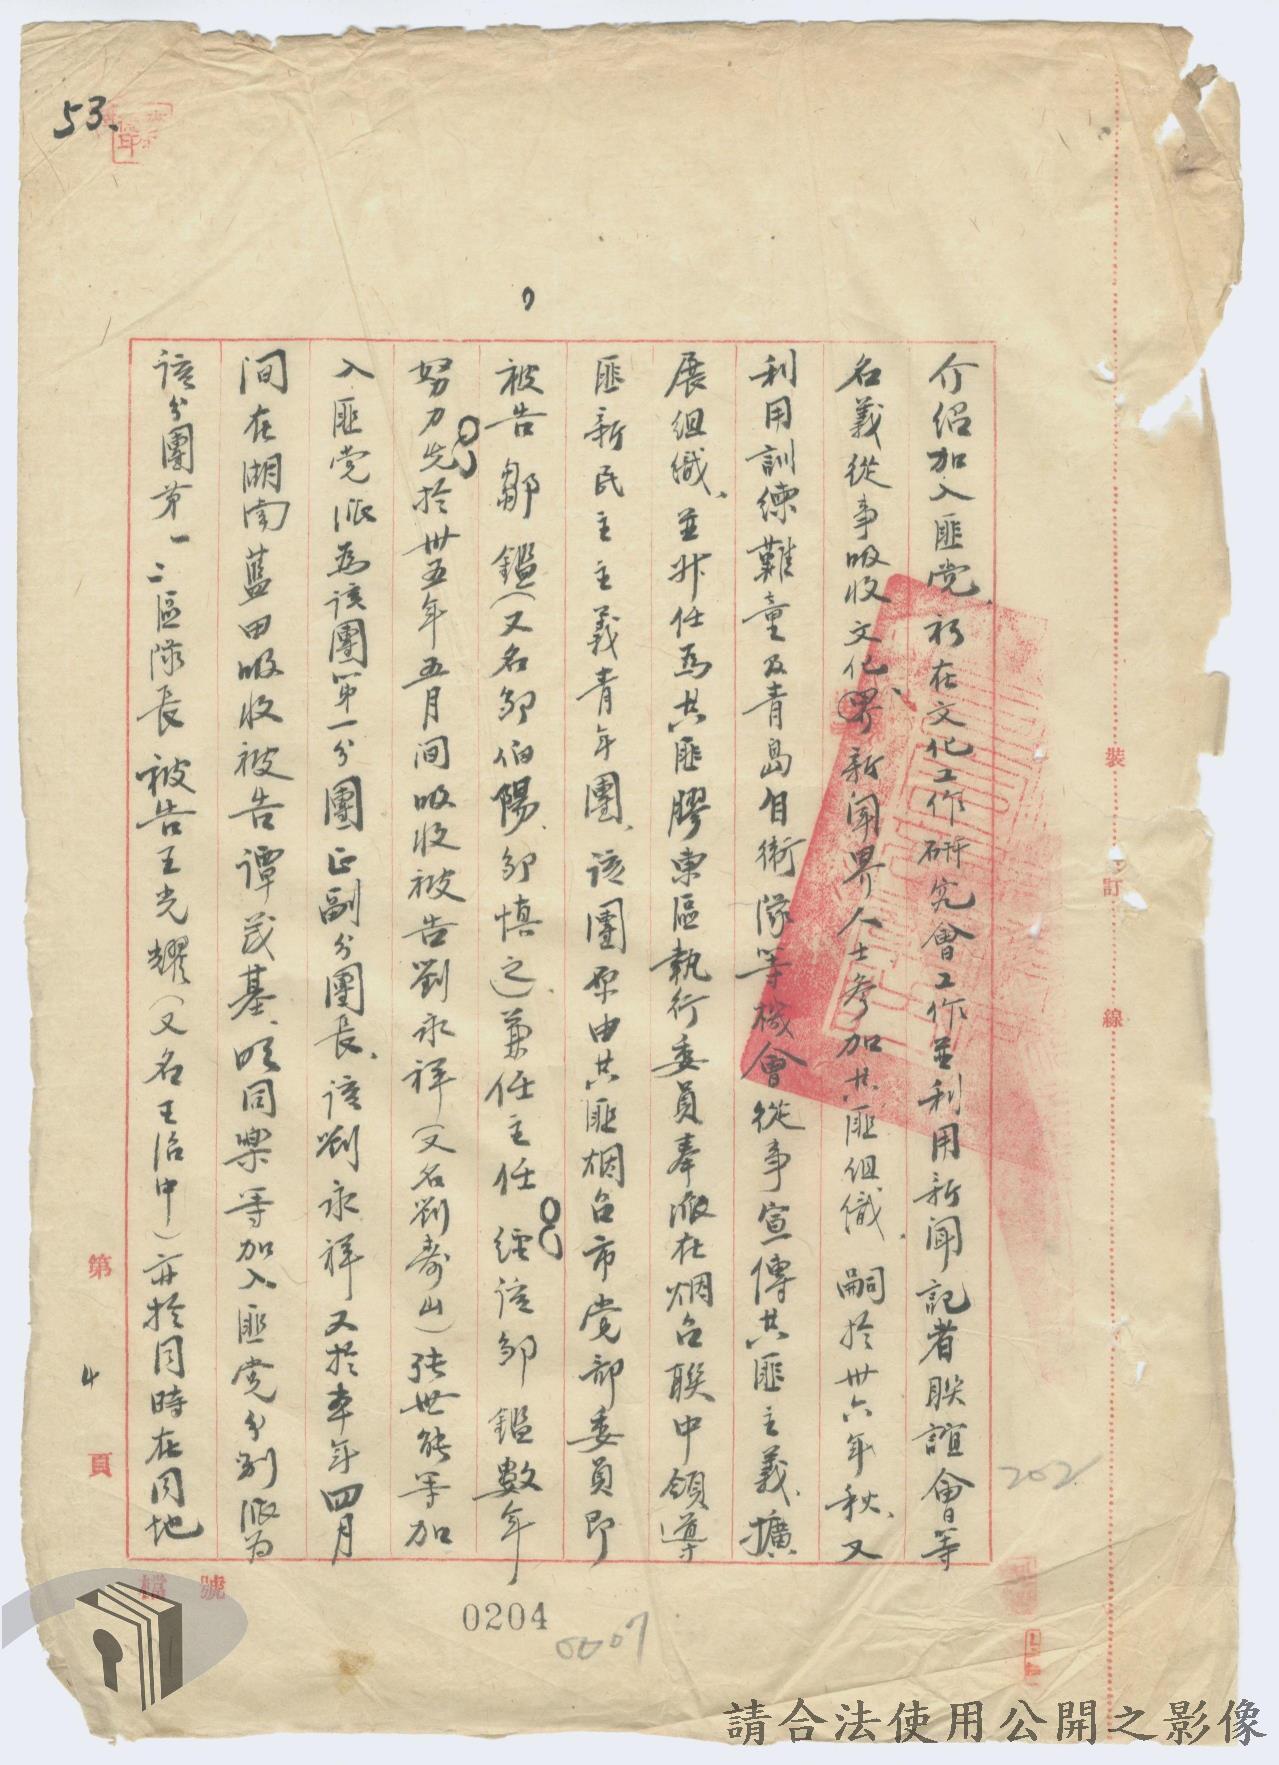 53.
介紹加入匪党、初在文化工作研究會工作並利用新闻記者联誼會等
名義從事吸收文化界、新闻界人士参加共匪組織、嗣於卅六年秋、又
利用訓練難童及青島自衛隊等機會從事宣傳共匪主義、擴
展組織、並升任為共匪膠東區執行委員奉派在烟台联中領導
匪新民主主義青年團、該團原由共匪烟台市党部委員即
被告鄒鑑(又名邹伯陽、邹慎之)兼任主任 經該邹鑑數年
努力先於卅五年五月间吸收被告劉永祥(又名劉寿山)张世能等加
入匪党派為該團第一分團正副分團長、該劉永祥又於本年四月
间在湖南藍田吸收被告譚茂基、明同樂等加入匪党分别派为
該分團第一二區隊長被告王光耀(又名王治中)亦於同時在同地
裝
訂
線
第 4 頁
檔號
202
0204
0007
請合法使用公開之影像